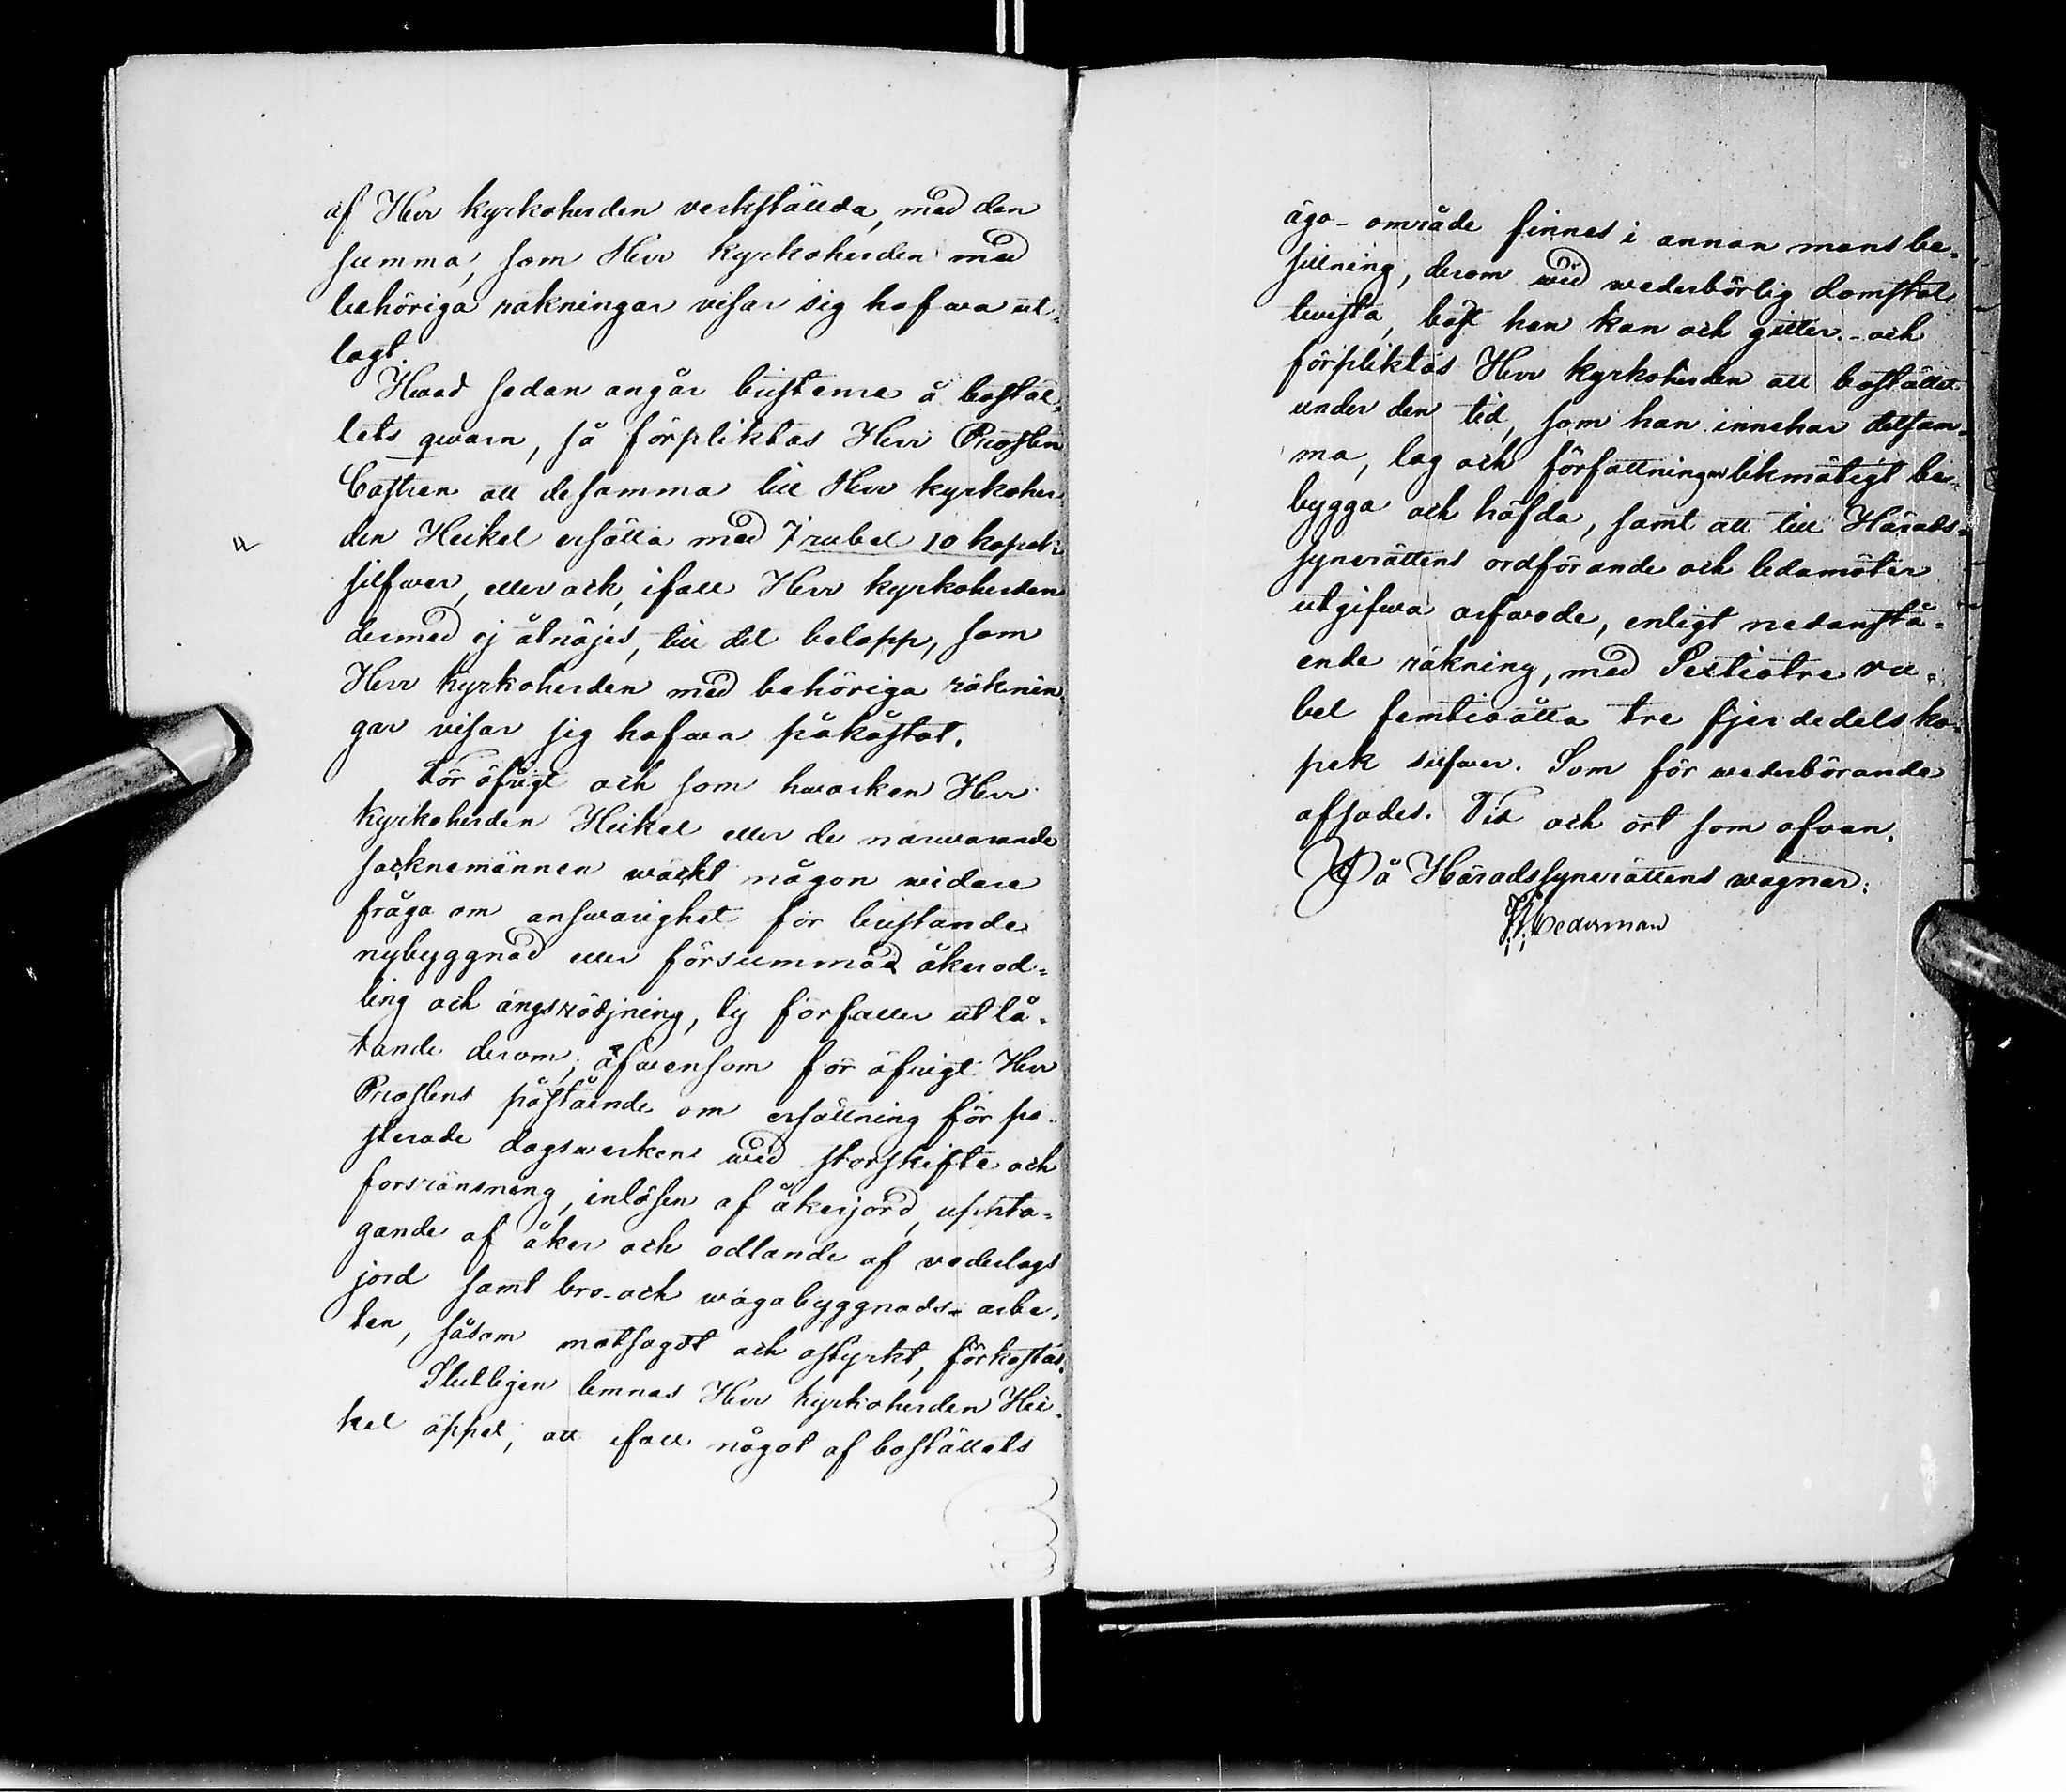 af Herr kyrkoherden verkställda, med den
summa, som Herr kyrkoherden med
behöriga räkningar visar sig hafwa ut-
lagt.
Hvad sedan angår bristerne å bostäl-
lets qwarn, så förpliktas Herr Prosten
Castren att desamma till Herr kyrkoher-
den Heikel ersätta med 7 rubel 10 kopek
silfwer, eller ock, ifall Herr kyrkoherden
dermed ej åtnöjes, till det belopp, som
Herr kyrkoherden med behöriga räknin-
gar visar sig hafwa påkostat.
För öfrigt och som hwarken Herr
kyrkoherden Heikel eller de närwarande
socknemännen wäckt någon widare
fråga om answarighet för bristande
nybyggnad eller försummad åkerod-
ling och ängsrödjning, ty förfaller utlå-
tande derom; äfwensom för öfrigt Herr
Prostens påstående om ersättning för pre-
sterade dagswerken wid storskifte och
forsränsning, inlösen af åkerjord, uppta-
gande af åker och odlande af vederlags
jord samt bro- och wägabyggnads-arbe-
ten, såsom motsagdt och ostyrkt, förkastas.
Slutligen lemnas Herr kyrkoherden Hei-
kel öppet, att ifall något af boställets
ägo-område finnes i annan mans be-
sittning, derom wid wederbörlig domstol
twista, bäst han kan och gitter. - och
förpliktas Herr kyrkoherden att bostället
under den tid, som han innehar detsam-
ma, lag och författningar likmätigt be-
bygga och häfda, samt att till Härads-
synerättens ordförande och ledamöter
utgifwa arfwode, enligt nedanstå-
ende räkning, med Sextiotre ru-
bel femtioåtta tre fjerdedels ko-
pek silfwer. Som för wederbörande
afsades. Tid och ort som ofvan.
På Häradssynerättens wägnar: